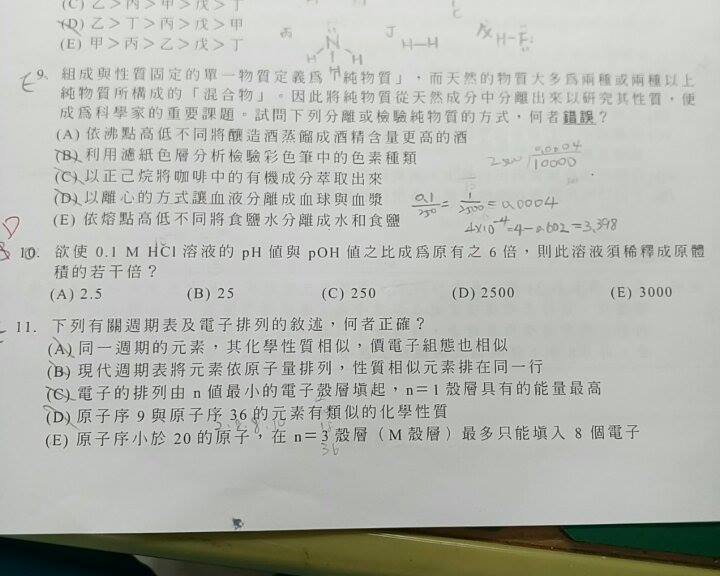 (C) 乙＞丙＞甲＞戊＞丁
(D) 乙＞丁＞丙＞戊＞甲
(E) 甲＞丙＞乙＞戊＞丁
丙
N
H H
H
丁
H—H
戊 H-F
E
9. 組成與性質固定的單一物質定義為「純物質」，而天然的物質大多為兩種或兩種以上
純物質所構成的「混合物」。因此將純物質從天然成分中分離出來以研究其性質，便
成為科學家的重要課題。試問下列分離或檢驗純物質的方式，何者錯誤？
(A) 依沸點高低不同將釀造酒蒸餾成酒精含量更高的酒
(B) 利用濾紙色層分析檢驗彩色筆中的色素種類
(C) 以正己烷將咖啡中的有機成分萃取出來
(D) 以離心的方式讓血液分離成血球與血漿
(E) 依熔點高低不同將食鹽水分離成水和食鹽
0.0004
10000
0.1/250 = 1/2500 = 0.0004
4×10⁻⁴=4-0.602=3.398
D
10. 欲使 0.1 M HCl 溶液的 pH 值與 pOH 值之比成為原有之 6 倍，則此溶液須稀釋成原體
積的若干倍？
(A) 2.5 (B) 25 (C) 250 (D) 2500 (E) 3000
11. 下列有關週期表及電子排列的敘述，何者正確？
(A) 同一週期的元素，其化學性質相似，價電子組態也相似
(B) 現代週期表將元素依原子量排列，性質相似元素排在同一行
(C) 電子的排列由 n 值最小的電子殼層填起，n＝1 殼層具有的能量最高
(D) 原子序 9 與原子序 36 的元素有類似的化學性質
(E) 原子序小於 20 的原子，在 n＝3 殼層（M 殼層）最多只能填入 8 個電子
36